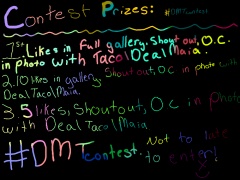 Contest Prizes: #DMTContest
1st Likes in Full gallery. Shout out, O.C.
in photo with Taco! Deal Maia.
2. 10 likes in gallery, Shout out, O c in photo with
Deal Taco! Maia.
3. 5 likes, Shoutout, O c in photo
with Deal Taco! Maia
#DMT contest. Not to late
to enter!